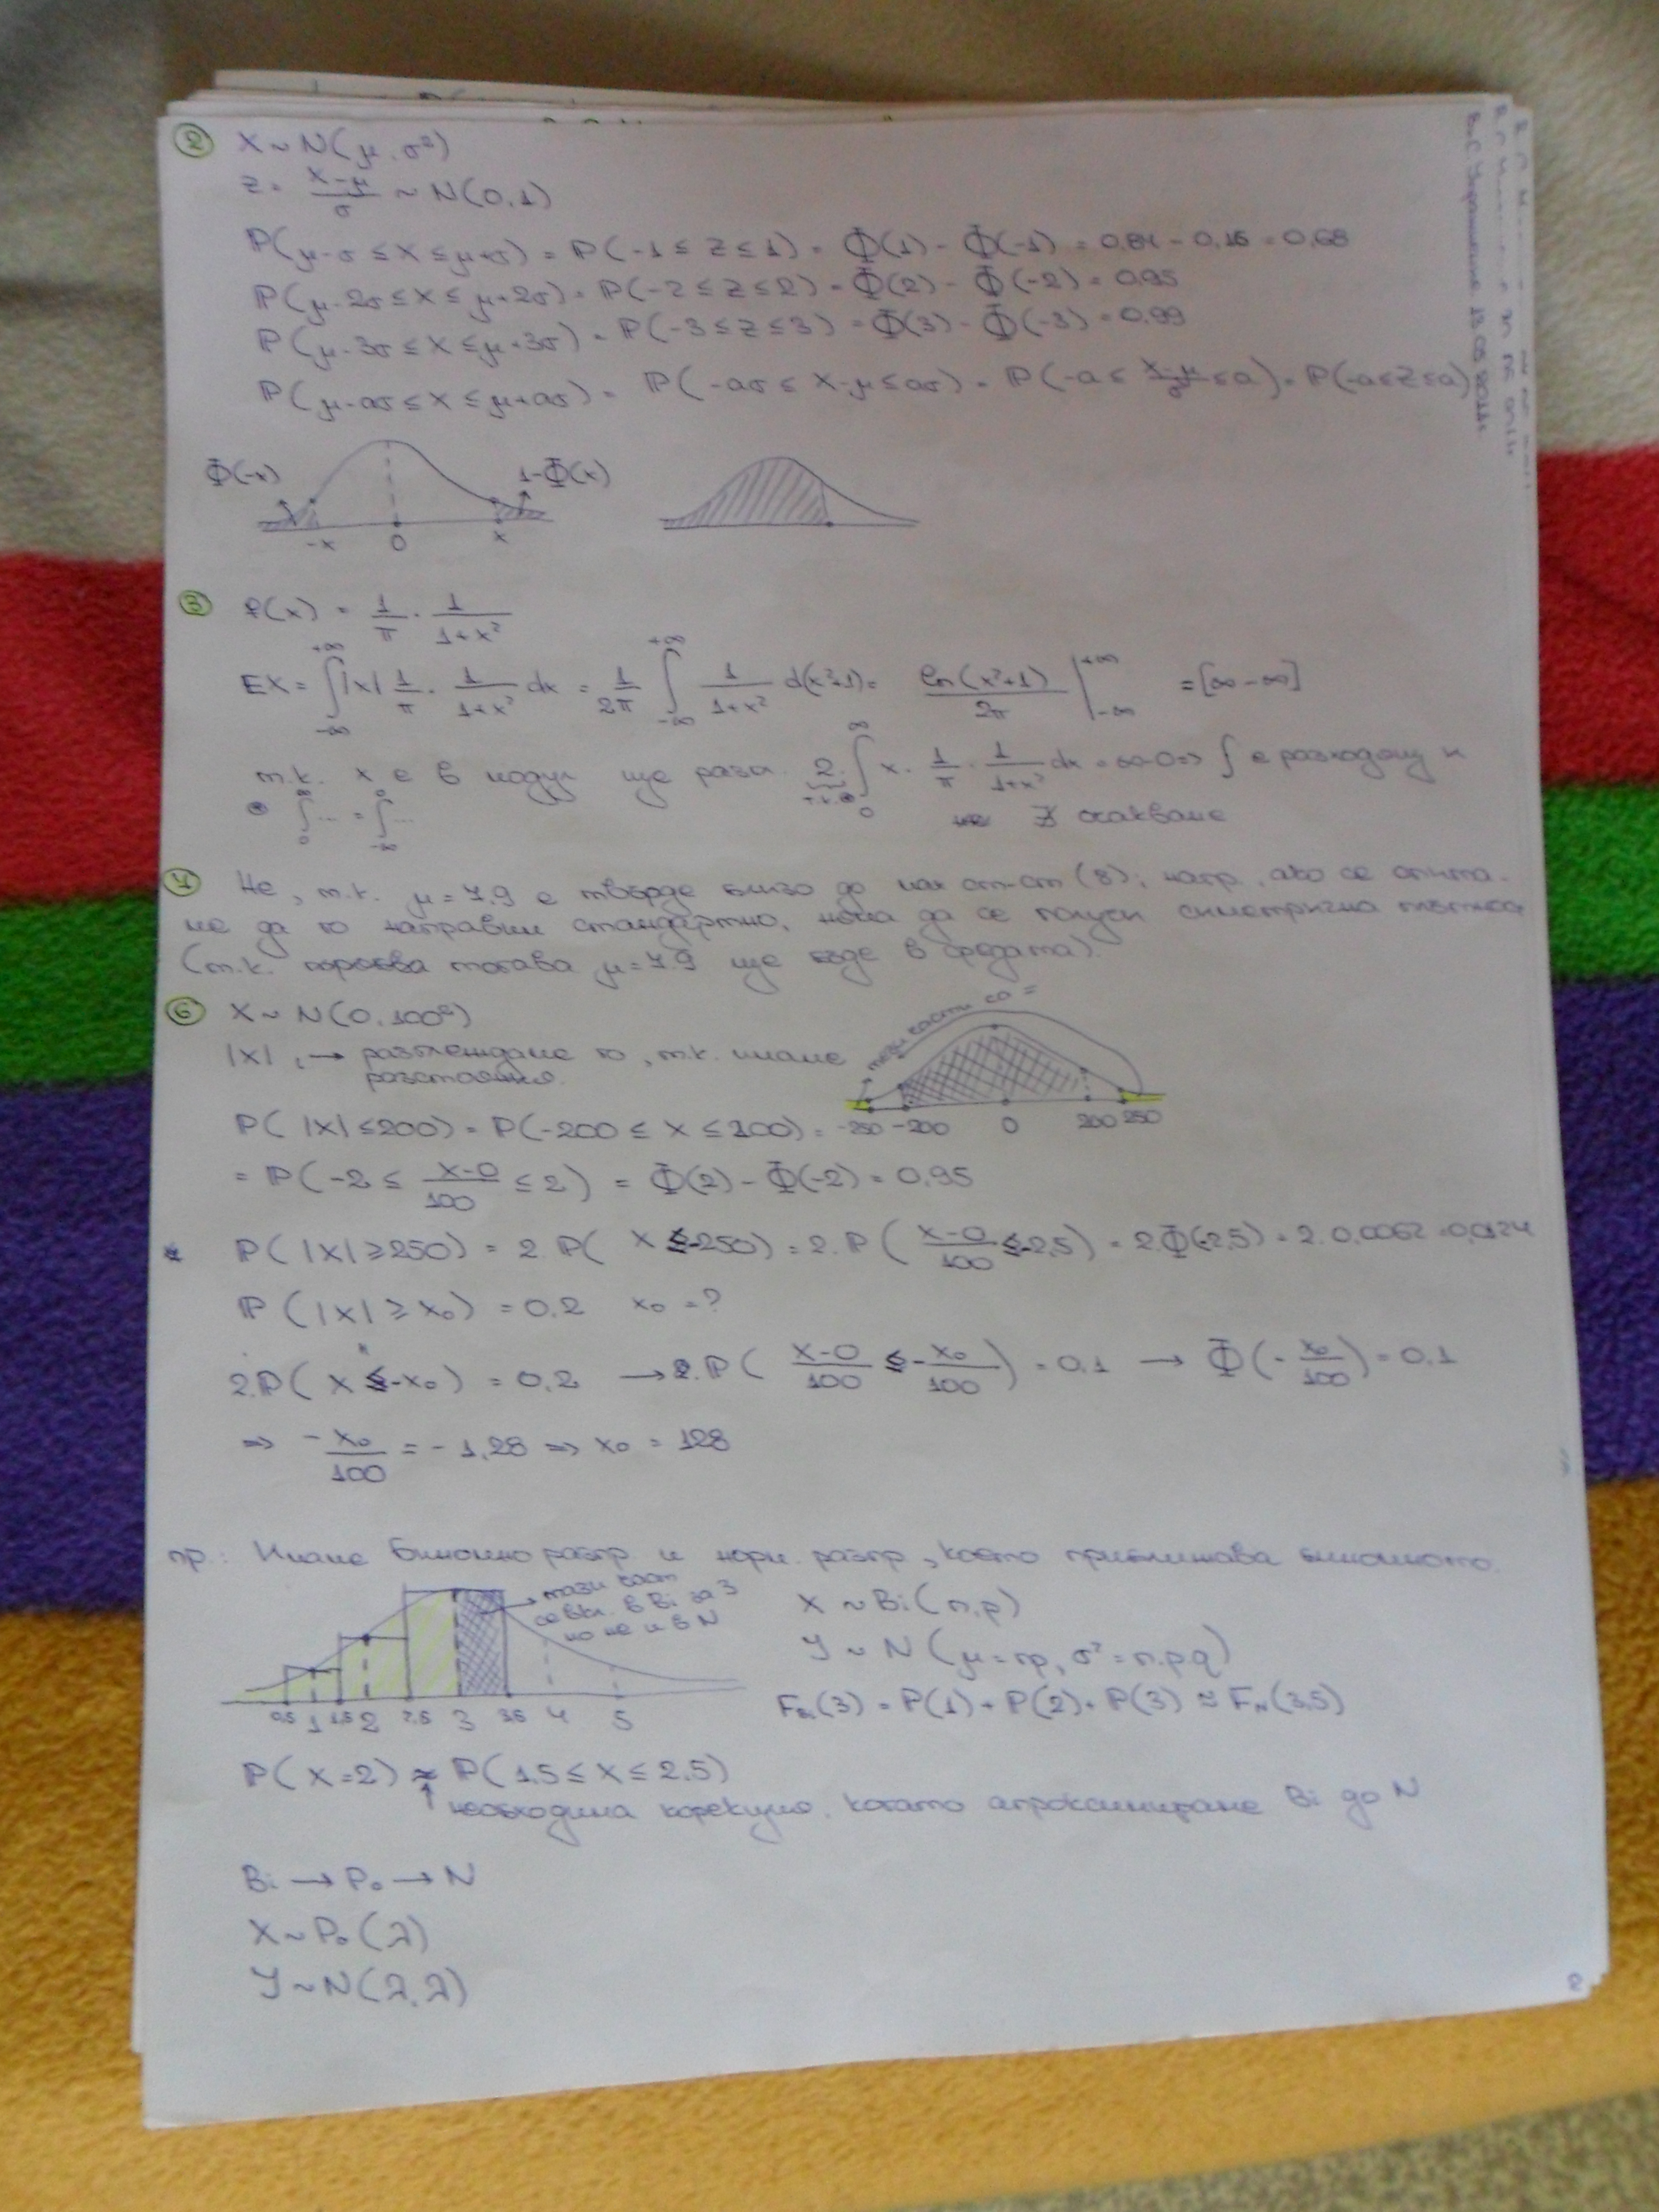 2 X ~ N(μ, σ²)
Z = (X-μ)/σ ~ N(0,1)
P(μ-σ ≤ X ≤ μ+σ) = P(-1 ≤ Z ≤ 1) = Φ(1) - Φ(-1) = 0,84 - 0,16 = 0,68
P(μ-2σ ≤ X ≤ μ+2σ) = P(-2 ≤ Z ≤ 2) = Φ(2) - Φ(-2) = 0,95
P(μ-3σ ≤ X ≤ μ+3σ) = P(-3 ≤ Z ≤ 3) = Φ(3) - Φ(-3) = 0,99
P(μ-aσ ≤ X ≤ μ+aσ) = P(-aσ ≤ X-μ ≤ aσ) = P(-a ≤ (X-μ)/σ ≤ a) = P(-a ≤ Z ≤ a)
Φ(-x) 1-Φ(x)
-x 0 x
3 f(x) = 1/π . 1/(1+x²)
EX = ∫_{-∞}^{+∞} |x| 1/π . 1/(1+x²) dx = 1/2π ∫_{-∞}^{+∞} 1/(1+x²) d(x²+1) = ln(x²+1)/2π |_{-∞}^{+∞} = [∞-∞]
т.к. x е в модул ще разгл. 2. ∫_0^∞ x. 1/π . 1/(1+x²) dx = ∞-0 => ∫ е разходящ и
∫_0^∞ ... = ∫_{-∞}^0 ... очакване
4 Не, т.к. μ = 7,9 е твърде близо до ст-ст (8), напр. ако се опита-
ме да го направим стандартно, няма да се получи симетрична плътност
(т.к. тогава μ=7.9 ще бъде в средата).
6 X ~ N(0, 100²)
|X| → разглеждаме го, т.к. имаме
разстояния.
тези части са =
-250 -200 0 200 250
P(|X| ≤ 200) = P(-200 ≤ X ≤ 200) =
= P(-2 ≤ (X-0)/100 ≤ 2) = Φ(2) - Φ(-2) = 0,95
P(|X| ≥ 250) = 2.P(X ≤ -250) = 2.P((X-0)/100 ≤ -2,5) = 2.Φ(-2,5) = 2. 0,0062 = 0,0124
P(|X| ≥ x₀) = 0,2 x₀ = ?
2.P(X ≤ -x₀) = 0,2 → P((X-0)/100 ≤ -x₀/100) = 0,1 → Φ(-x₀/100) = 0,1
=> -x₀/100 = -1,28 => x₀ = 128
пр: Имаме биномно разпр. и норм. разпр., което приближава биномното.
тази част
се вкл. в Bi за 3
но не и в N
0,5 1 1,5 2 2,5 3 3,5 4 5
X ~ Bi(n,p)
Y ~ N(μ=np, σ²=n.p.q)
F_Bi(3) = P(1) + P(2) + P(3) ≈ F_N(3,5)
P(X=2) ≈ P(1,5 ≤ X ≤ 2,5)
↑ необходима корекция, когато апроксимираме Bi до N
Bi → Po → N
X ~ Po(λ)
Y ~ N(λ, λ)